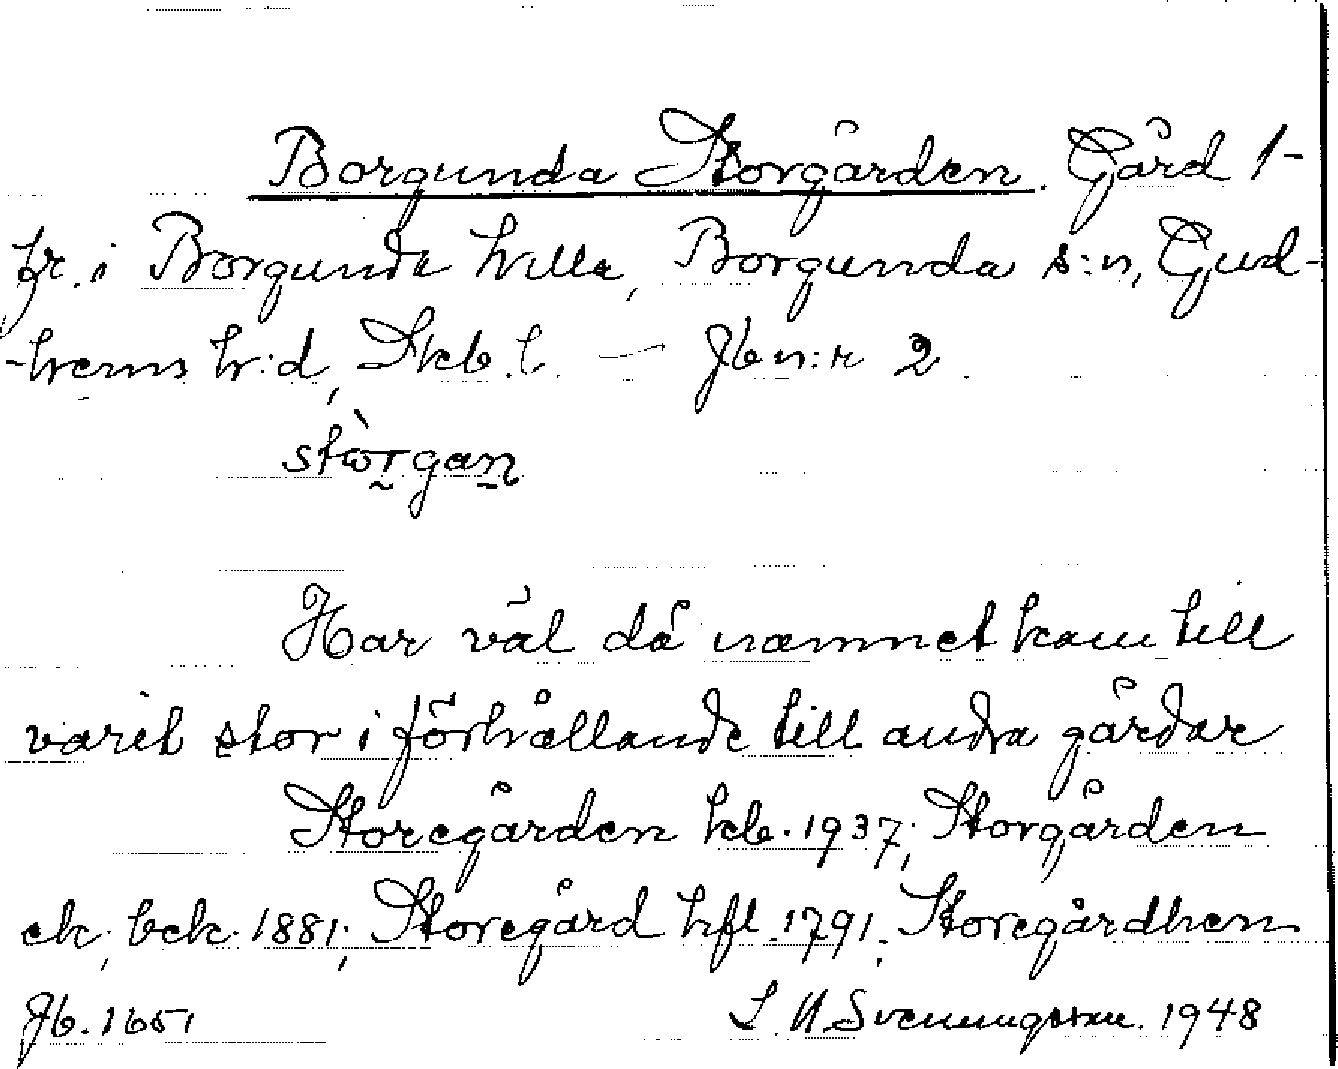 Borgunda Storgården. Gård 1-
br. i Borgunda Villa, Borgunda s:n, Gud-
-hems h:d, Skb. l. — Jb n:r 2.
stòrgan
Har väl då namnet kom till
varit stor i förhållande till andra gårdar
Storegården kb. 1937; Storgården
ek, bek. 1881; Storegård hfl. 1791; Storegårdhen
Jb. 1651 L. N. Svenungsson. 1948